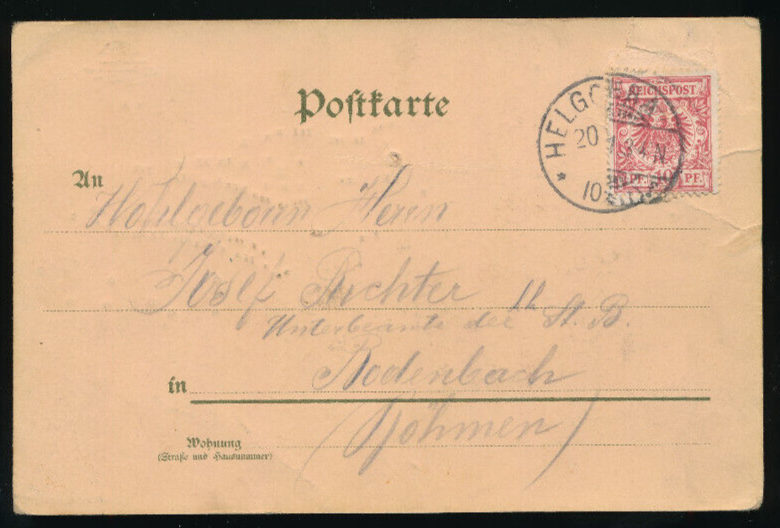 Postkarte
REICHSPOST
10 PF.
HELGOLAND
20
10
An
Wohlgeborn Herrn
Josef Richter
Unterbeamte der St. B.
in Bodenbach
(Böhmen)
Wohnung
(Straße und Hausnummer)